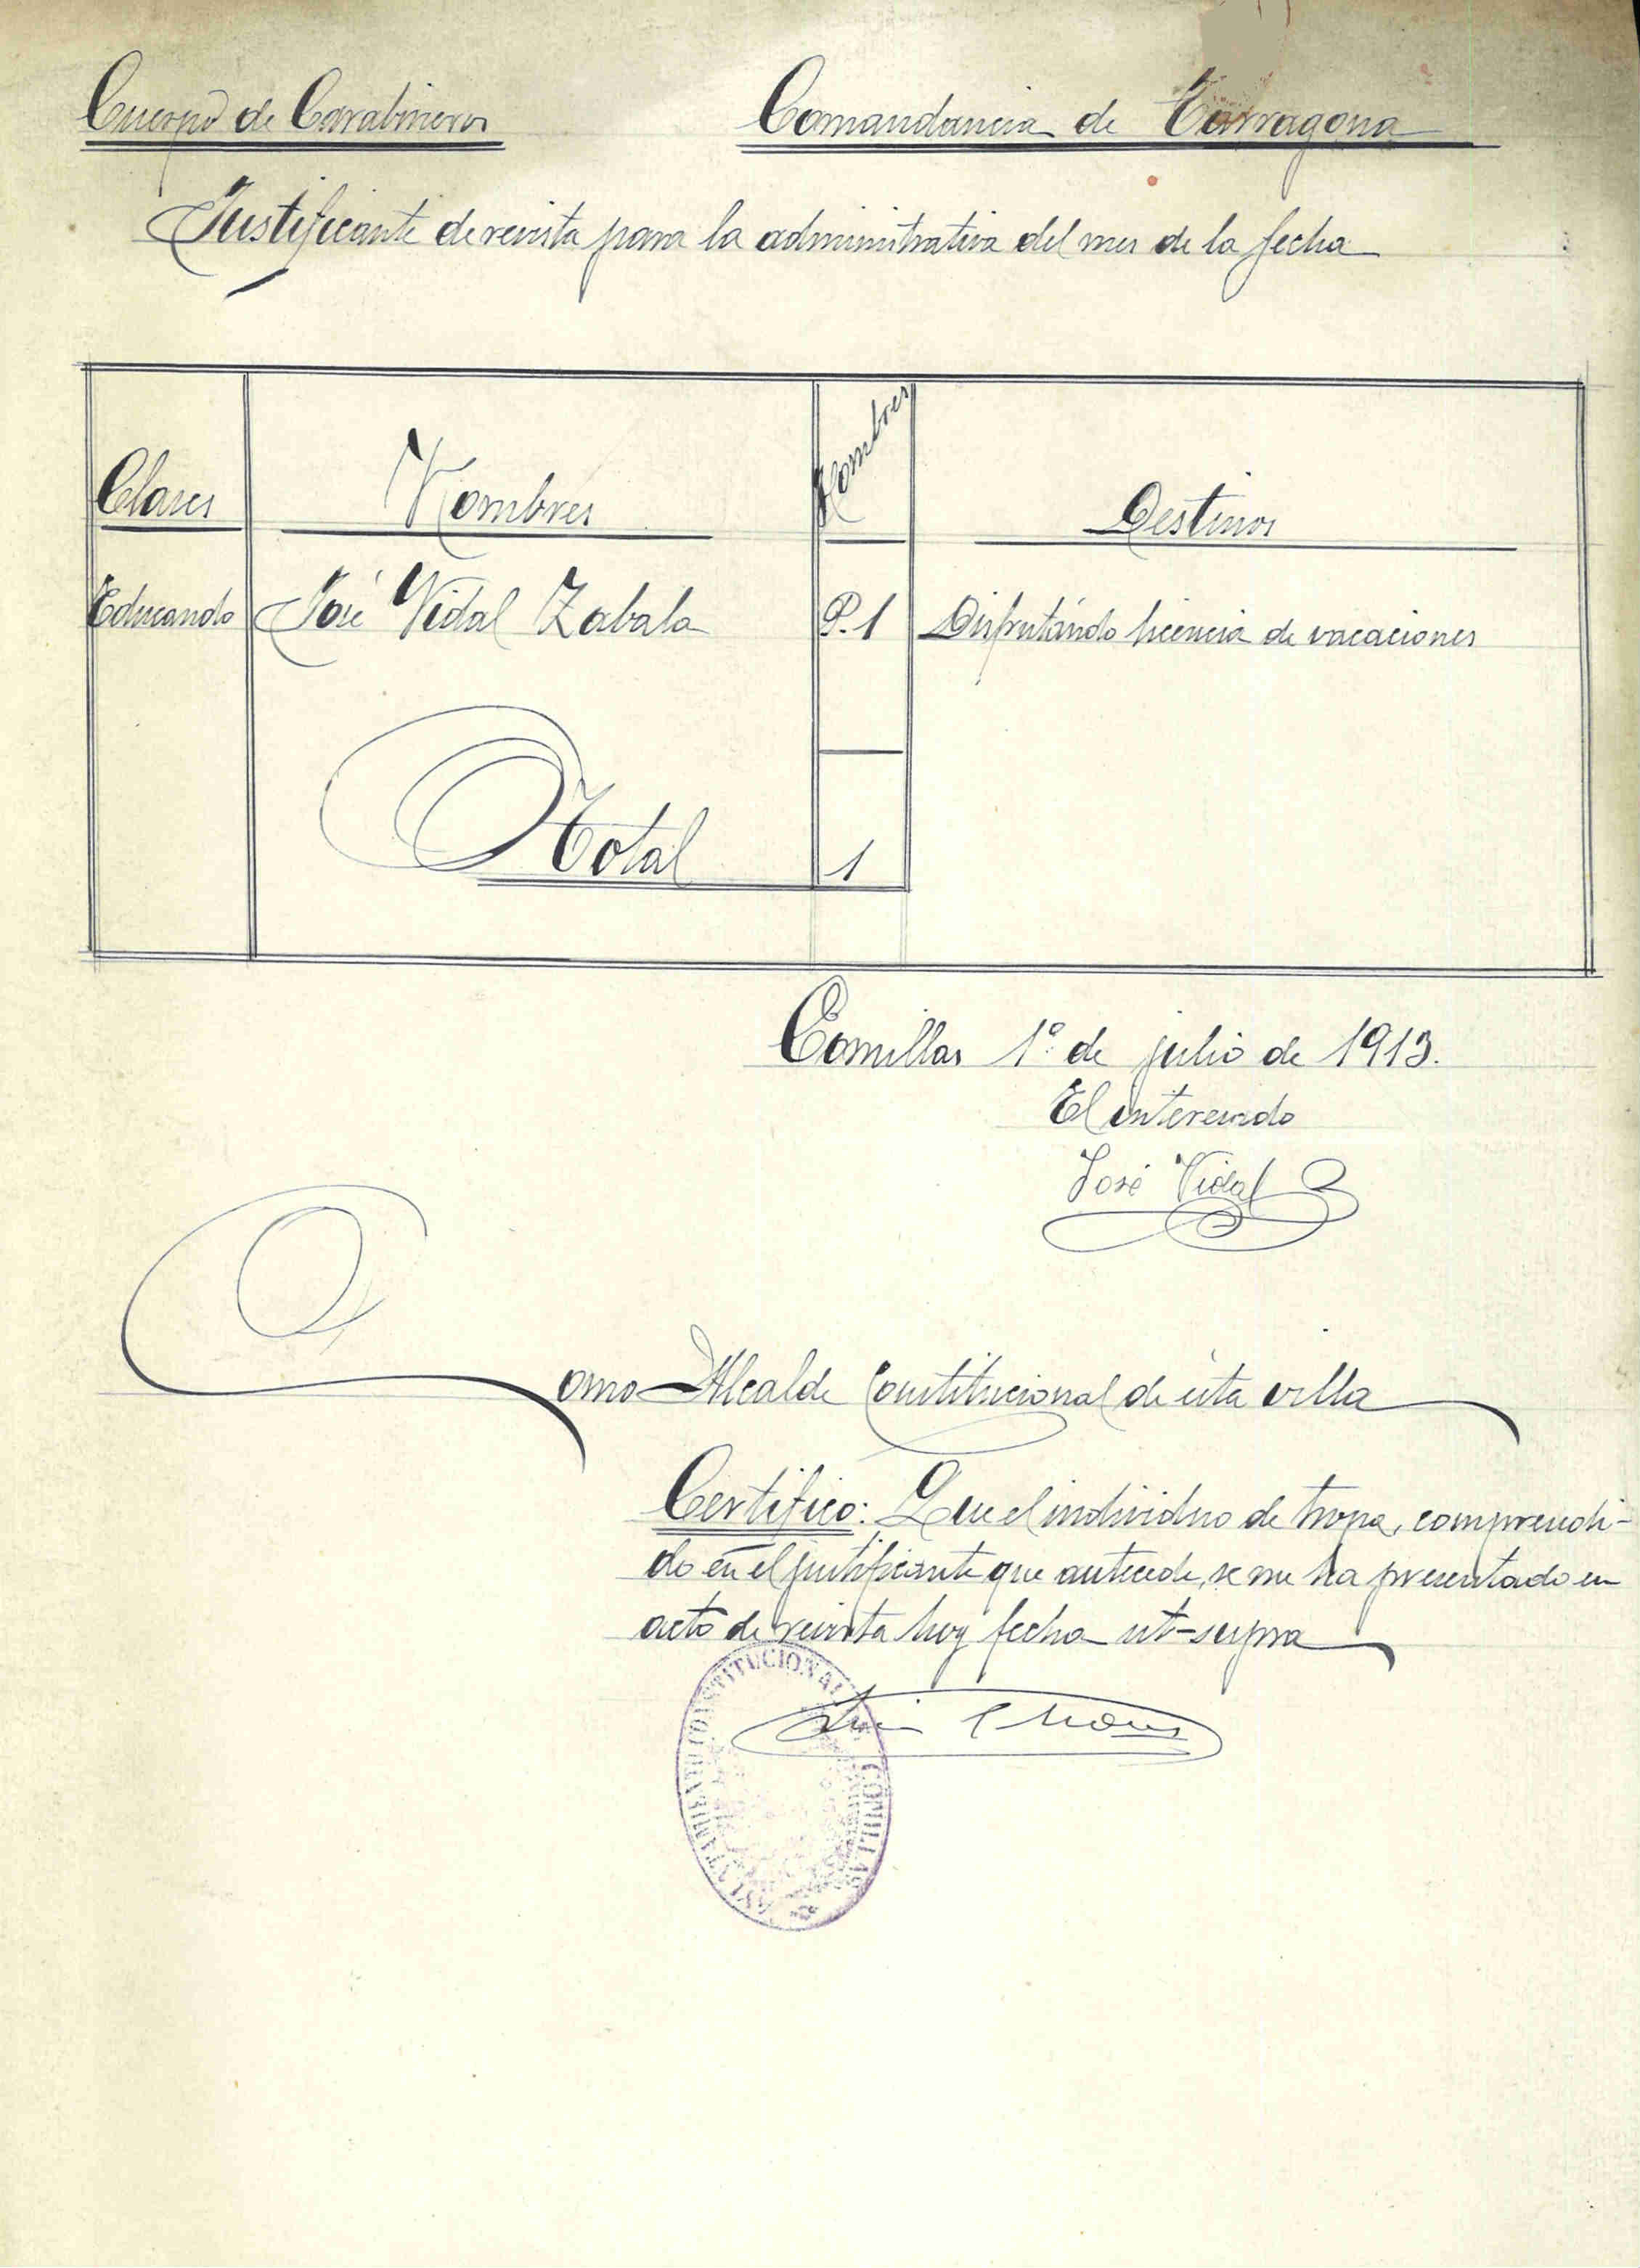 Cuerpo de Carabineros Comandancia de Tarragona
Justificante de revista para la administrativa del mes de la fecha
Clases Nombres Hombres Destinos
Educando José Vidal Zabala P. 1 Disfrutando licencia de vacaciones
Total 1
Comillas 1º de julio de 1913.
El interesado
José Vidal
Como Alcalde Constitucional de ésta villa
Certifico: Que el individuo de tropa, comprendi-
do en el justificante que antecede, se me ha presentado en
acto de revista hoy fecha ut-supra
AYUNTAMIENTO CONSTITUCIONAL COMILLAS